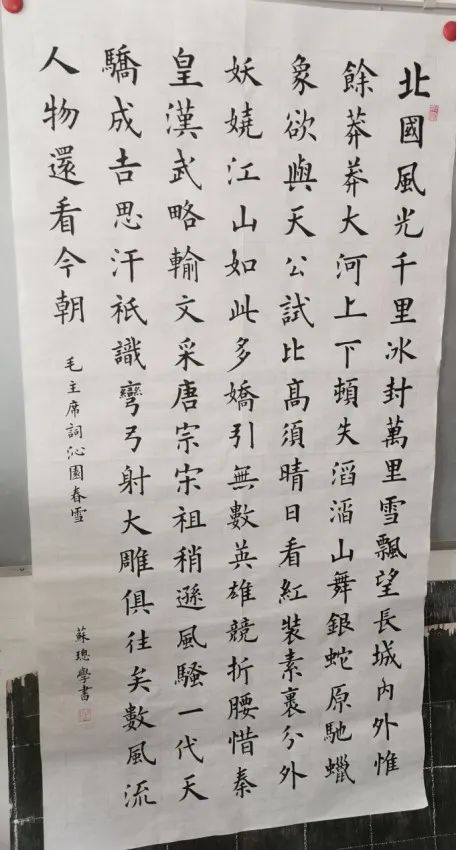 北國風光千里冰封萬里雪飄望長城內外惟
餘莽莽大河上下頓失滔滔山舞銀蛇原馳蠟
象欲與天公試比髙須晴日看紅裝素裹分外
妖嬈江山如此多嬌引無數英雄競折腰惜秦
皇漢武略輸文采唐宗宋祖稍遜風騷一代天
驕成吉思汗祇識彎弓射大雕俱往矣數風流
人物還看今朝
毛主席詞沁園春雪
蘇璁學書